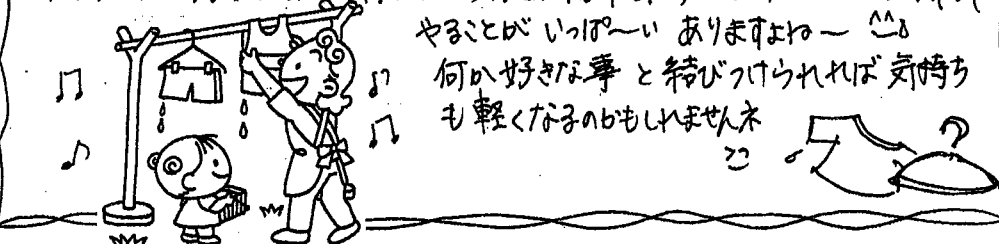 やることが いっぱ〜い ありますよね〜
何か好きな事 と 結びつけられれば 気持ち
も 軽くなるのかもしれませんネ